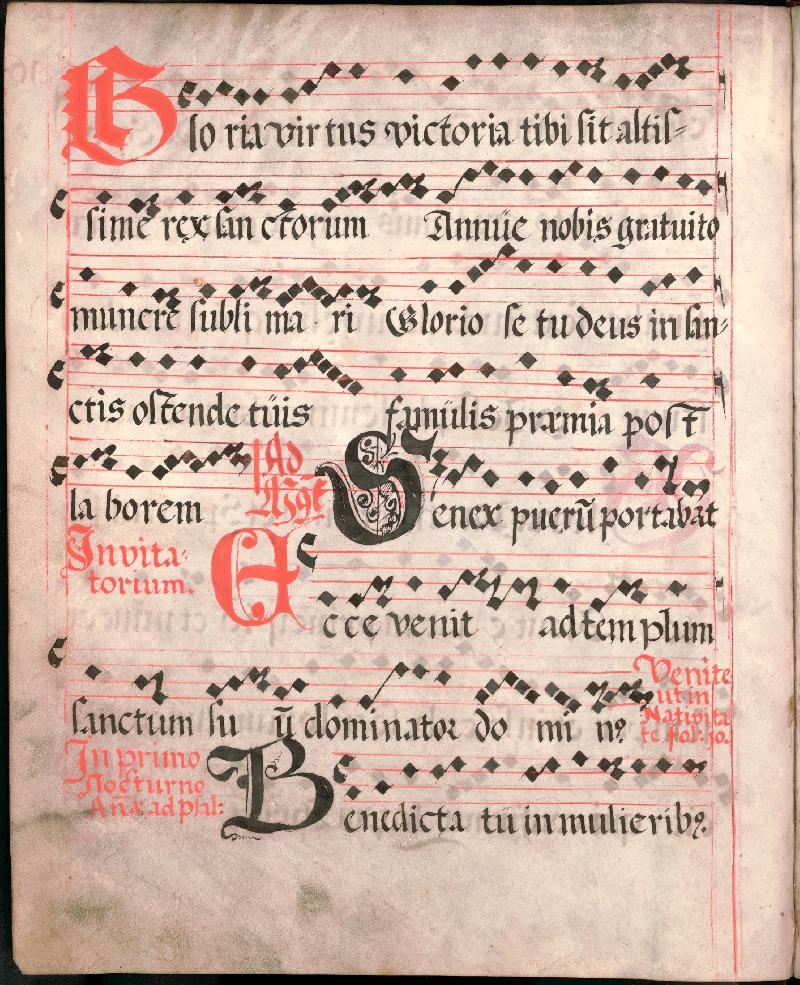 Glo ria vir tus victoria tibi sit altis=
sime rex san ctorum Annüe nobis gratuito
munere subli ma ri Glorio se tu deus in san=
ctis ostende tüis famülis præmia post
la borem Ad Mgt Senex puerũ portabãt
Invita-
torium. Ecce venit ad templum
sanctum su ũ dominator do mi nꝰ Venite
ut in
Nativita
te fol: 30.
In primo
Nocturno
Añæ ad psal: Benedicta tü in mulieribꝰ.